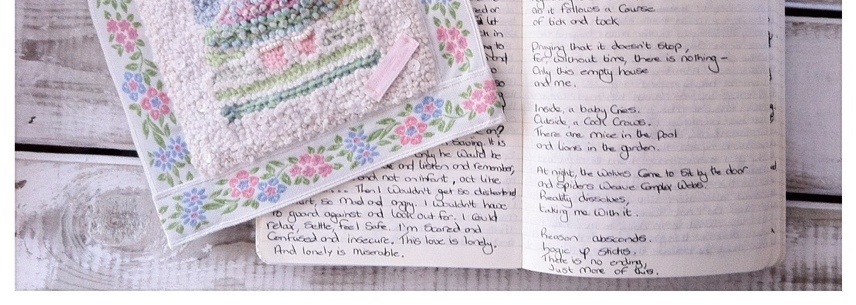 and let
ch in
ng to
and
so
on?
saying. It is
only he would be
and listen and remember,
and not an infant, act like
... Then I wouldn't get so disturbed
hurt, so mad and angry. I wouldn't have
to guard against and look out for. I could
relax, settle, feel safe. I'm scared and
confused and insecure. This love is lonely.
And lonely is miserable.
as it follows a course
of tick and tock.
Praying that it doesn't stop,
for, without time, there is nothing –
Only this empty house
and me.
Inside, a baby cries.
Outside, a cock crows.
There are mice in the pool
and lions in the garden.
At night, the wolves come to sit by the door
and spiders weave complex webs.
Reality dissolves,
taking me with it.
Reason absconds.
Logic up sticks.
There is no ending,
Just more of this.